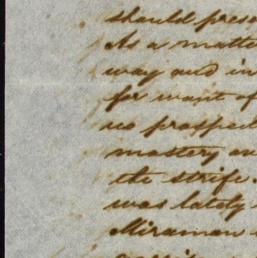 should prese
As a matte
way and in
for want of
mastery ov
the strife.
was lately
Miramon